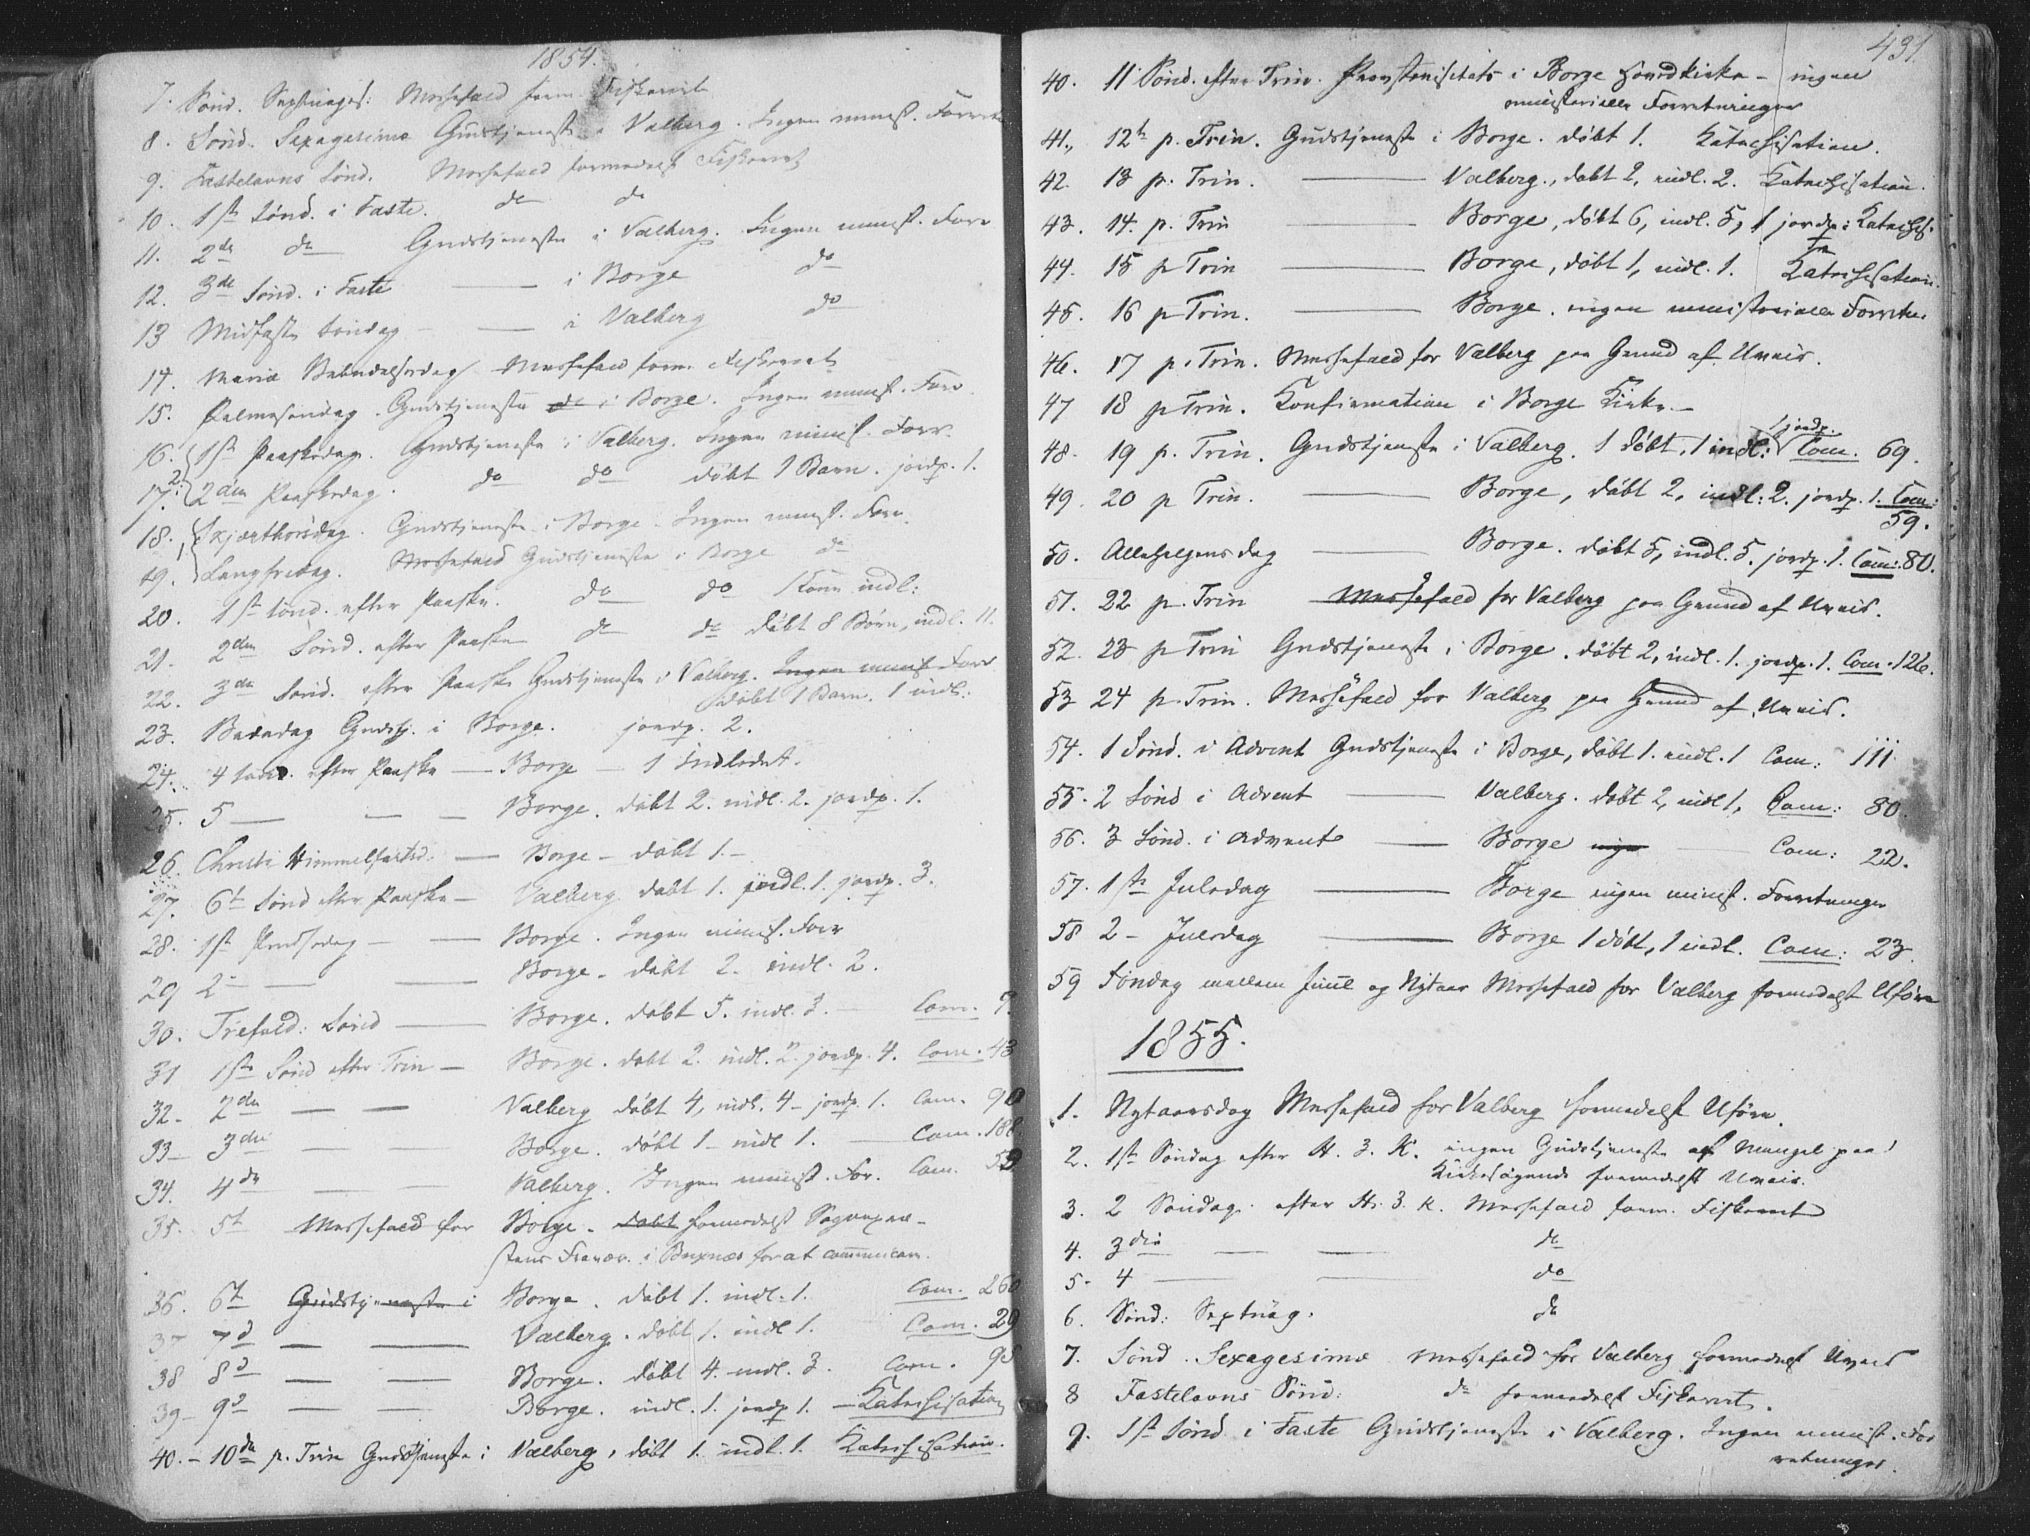 1854.
7. Sønd. Septuages: Messefald form. Fiskeriet
8. Sønd. Sexagesima Gudstjeneste i Valberg. Ingen minist. Forretn
9. Fastelavns Sønd. Messefald formedelst Fiskeriet
10. 1ste Sønd. i Faste. do do
11. 2de do Gudstjeneste i Valberg. Ingen minist. Forr
12. 3de Sønd. i Faste — i Borge do
13 Midfaste Søndag — — i Valberg do
14. Mariæ Bebudelsesdag Messefald form. Fiskeriet
15. Palmesøndag. Gudstjeneste do i Borge. Ingen minist. Forr.
16. 1ste Paaskedag. Gudstjeneste i Valberg. Ingen minist. Forr.
17. 2. 2den Paaskedag. do do døbt 1 Barn. jordp. 1.
18. 1, Skjærthorsdag. Gudstjeneste i Borge. Ingen minist. Forr.
19. Langfredag. Messefald Gudstjeneste i Borge do
20. 1ste Sønd. efter Paaske. do do 1 Kone indl:
21. 2den Sønd. efter Paaske do do døbt 8 Børn, indl. 11.
22. 3de Sønd. efter Paaske Gudstjeneste i Valberg. Ingen minist Forr
døbt 1 Barn. 1 indl.
23. Bededag Gudstj. i Borge. jordp. 2.
24. 4 Sønd. efter Paaske — Borge — 1 Indledet.
25. 5 — — — Borge. døbt 2. indl. 2. jordp. 1.
26. Christi Himmelfartsd. — Borge — døbt 1. —
27. 6te Sønd efter Paaske — Valberg døbt 1. indl. 1. jordp. 3.
28. 1ste Pindsedag — — Borge. Ingen minist. Forr
29 2 — — — Borge. døbt 2. indl. 2.
30. Trefold: Sønd — Borge. døbt 5. indl. 3. — Com. 9.
31 1ste Sønd efter Trin — Borge. døbt 2. indl. 2. jordp. 4. Com. 43
32- 2den — — Valberg døbt 4, indl. 4 — jordp. 1. Com. 90
33- 3die — — Borge. døbt 1 — indl 1. — Com. 188
34. 4de — — Valberg. Ingen minist. For. Com. 53
35. 5te Messefald for Borge. døbt formedelst Sognepræ-
stens Fravær. i Buxnæs for at communicere.
36. 6te Gudstjeneste i Borge. døbt 1. indl. 1. Com. 260
37 7d — — Valberg. døbt 1. indl 1. Com. 29
38 8d — — Borge. døbt 4. indl. 3. Com. 95
39- 9d — — Borge. indl. 1. jordp 1. — Katechisation
40. - 10de p. Trin Gudstjeneste i Valberg, døbt 1. indl. 1. Katechisation.
431.
40. 11 Sønd. efter Trin. Provstevisitats i Borge Hovedkirke — ingen
ministerielle Forretninger
41., 12te p. Trin. Gudstjeneste i Borge. døbt 1. Katechisation.
42. 13 p. Trin. — Valberg., døbt 2, indl. 2. Katechisation.
43. 14. p. Trin — Borge, døbt 6, indl. 5, 1 jordp: Kateches.
44. 15 p Trin — Borge, døbt 1, indl. 1. Katechisation.
45. 16 p Trin. — Borge. ingen ministerielle Forretn.
46. 17 p. Trin. Messefald for Valberg paa Grund af Uveir.
47 18 p Trin. Konfirmation i Borge Kirke. —
48. 19 p. Trin. Gudstjeneste i Valberg. 1 døbt, 1 indl: 1 jordp. Com. 69.
49. 20 p Trin. — Borge, døbt 2, indl: 2. jordp. 1. Com:
59.
50. Allehelgensdag — Borge. døbt 5, indl. 5. jordp. 1. Com: 80.
51. 22 p. Trin Messefald for Valberg paa Grund af Uveir.
52. 23 p Trin Gudstjeneste i Borge. døbt 2, indl. 1. jordp. 1. Com. 126.
53 24 p. Trin. Messefald for Valberg paa Grund af Uveir.
54. 1 Sønd. i Advent Gudstjeneste i Borge, døbt 1. indl. 1 Com: 111
55. 2 Sønd i Advent — Valberg. døbt 2, indl 1, Com: 80
56. 3 Sønd. i Advent — Borge ingen — Com: 22.
57. 1ste Juledag — Borge ingen minist. Forretninger
58 2 — Juledag — Borge 1 døbt, 1 indl. Com: 23.
59 Søndag mellem Juul og Nytaar Messefald for Valberg formedelst Uføre
1855.
1. Nytaarsdag Messefald for Valberg formedelst Uføre.
2. 1ste Søndag efter H. 3. K. ingen Gudstjeneste af Mangel paa
Kirkesøgende formedelst Uveir.
3. 2 Søndag. efter H. 3. K. Messefald form. Fiskeriet
4. 3die — — do
5. 4 — — do
6. Sønd: Septuag. do
7. Sønd. Sexagesima Messefald for Valberg formedelst Uveir
8 Fastelavns Sønd: do formedelst Fiskeriet.
9. 1ste Sønd i Faste Gudstjeneste i Valberg. Ingen minist. For
retninger.